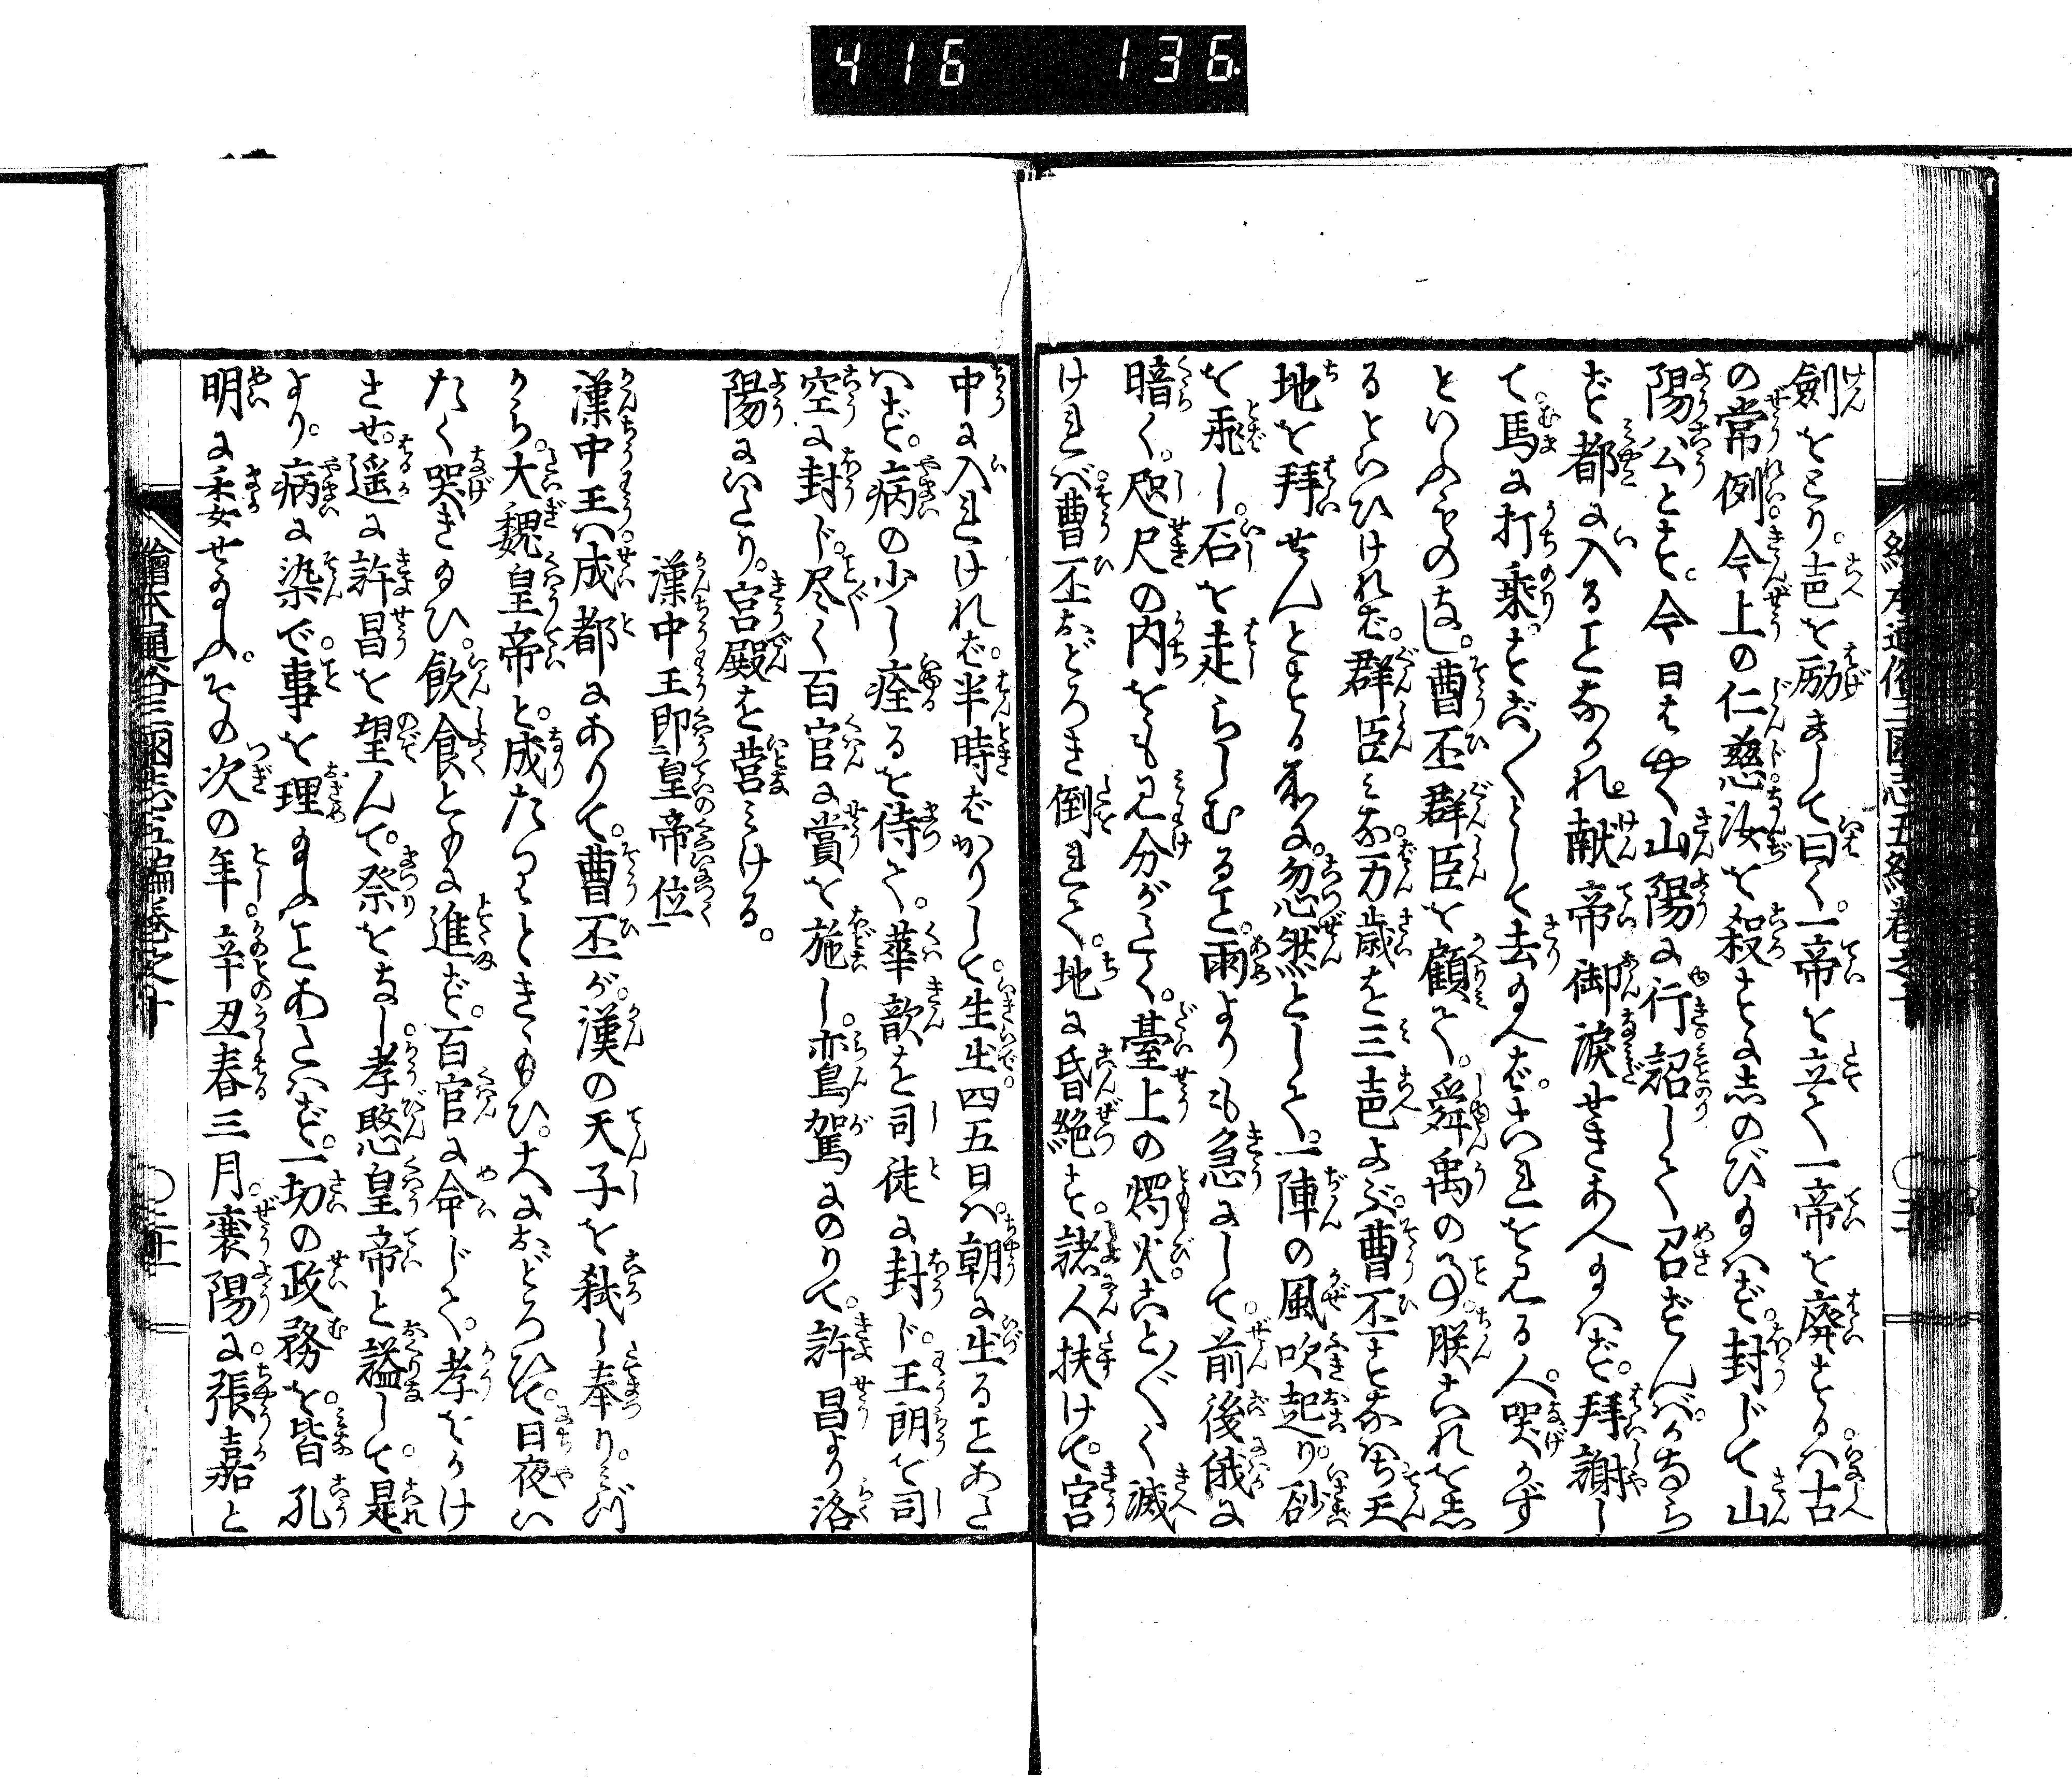 416 136
劍をとり。声を励まして曰く。一帝を立て一帝を廃するハ。古
の常例。今上の仁慈。汝を殺すに忍のび給ハず。封じて山
陽公とす。今日はやく山陽に行。詔して召ずんバ。かならず
ず都に入ることなかれ。献帝御涙せきあへ給ハず。拜謝し
て。馬に打乗。すご〳〵として去給へば。これを見る人。哭かず
といふものなし。曹丕群臣を顧て。舜禹の事。朕これを知
るといひけれバ。群臣ミな万歳を三声よぶ。曹丕すなハち天
地を拜せんとする所に。忽然として。一陣の風吹起り。砂
を飛し。石を走らしむること。雨よりも急にして。前後俄に
暗く。咫尺の内をも見分がたく。臺上の燭火ことごとく滅
けれバ。曹丕おどろき倒れて。地に昏絶す。諸人扶けて。宮
中に入れけれバ。半時ばかりして。生出。四五日ハ。朝に出ることあた
ハず。病の少し痊るを待て。華歆を司徒に封ド。王朗を司
空に封ド。尽く百官に賞を施し。鸞駕にのりて。許昌より洛
陽にいたり。宮殿を営ミける。
漢中王即皇帝位
漢中王ハ。成都にありて。曹丕が。漢の天子を弑し奉り。ミづ
から。大魏皇帝と。成たりときゝ給ひ。大におどろひて。日夜い
たく哭き給ひ。飲食ともに進まず。百官に命じて。孝をかけ
させ。遥に許昌を望んで。祭をなし。孝愍皇帝と謚して。是
より。病に染で。事を理給ふことあたハず。一切の政務を。皆孔
明に委せ給ふ。その次の年。辛丑春三月。襄陽に。張嘉と
繪本通俗三國志五編卷之十